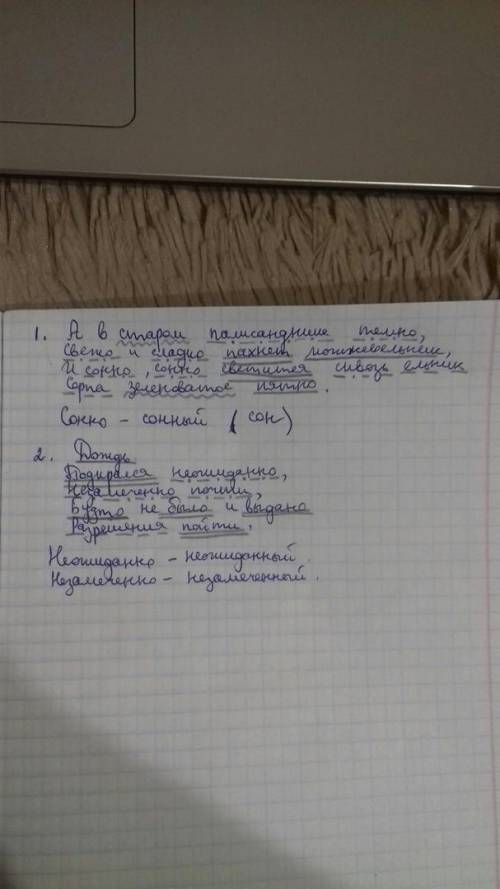 1. А в старом палисаднике темно,
Свежо и сладко пахнет можжевельник,
И сонно, сонно светится сквозь ельник
Серпа зеленоватое пятно.
Сонно - сонный (сон)
2. Дождь
Подкрался неожиданно,
Незамеченно почти,
Будто не было и выдано
Разрешения пойти.
Неожиданно - неожиданный.
Незамеченно - незамеченный.